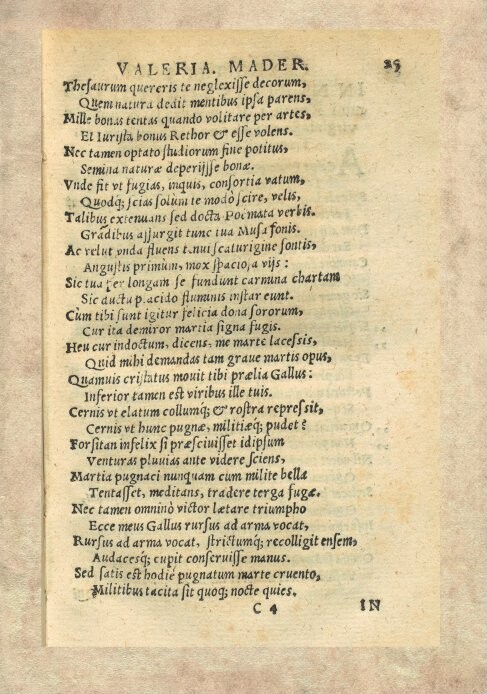 VALERIA. MADER. 25
Thesaurum quereris te neglexisse decorum,
Quem natura dedit mentibus ipsa parens,
Mille bonas tentas quando volitare per artes,
Et Iurista bonus Rethor & esse volens.
Nec tamen optato studiorum fine potitus,
Semina naturæ deperijsse bonæ.
Vnde fit vt fugias, inquis, consortia vatum,
Quodq; scias solum te modò scire, velis,
Talibus extenuans sed docta Poëmata verbis.
Gradibus assurgit tunc tua Musa sonis.
Ac velut vnda fluens tenui scaturigine fontis,
Angustis primùm, mox spaciosa vijs:
Sic tua per longam se fundunt carmina chartam
Sic ducta placido fluminis instar eunt.
Cùm tibi sunt igitur felicia dona sororum,
Cur ita demiror martia signa fugis.
Heu cur indoctum, dicens, me marte lacessis,
Quid mihi demandas tam graue martis opus,
Quamuis cristatus mouit tibi prælia Gallus:
Inferior tamen est viribus ille tuis.
Cernis vt elatum collumq; & rostra repressit,
Cernis vt hunc pugnæ, militiæq; pudet?
Forsitan infelix si præsciuisset idipsum
Venturas pluuias ante videre sciens,
Martia pugnaci nunquam cum milite bella
Tentasset, meditans, tradere terga fugæ.
Nec tamen omninò victor lætare triumpho
Ecce meus Gallus rursus ad arma vocat,
Rursus ad arma vocat, strictumq; recolligit ensem,
Audacesq; cupit conseruisse manus.
Sed satis est hodie pugnatum marte cruento,
Militibus tacita sit quoq; nocte quies.
C 4 IN